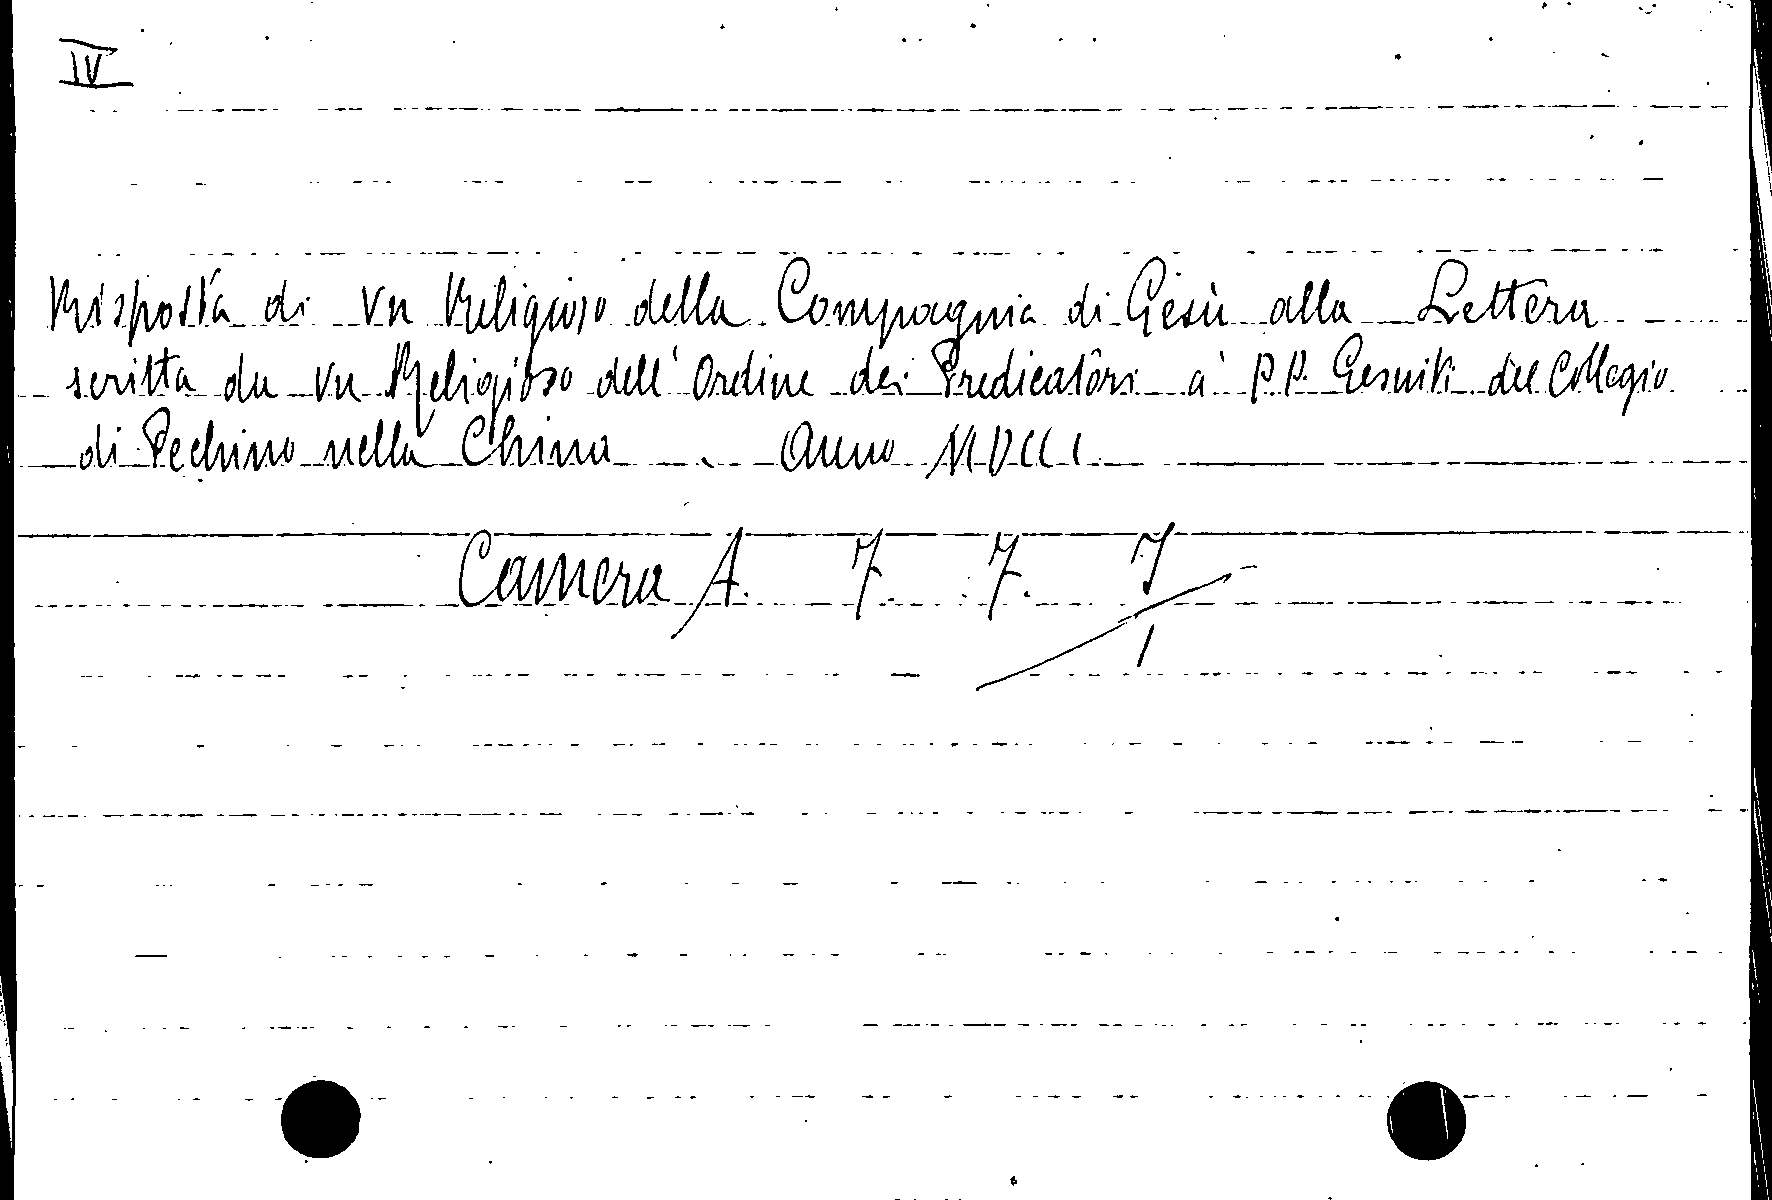 IV
Risposta di vn Religioso della Compagnia di Gesù alla Lettera
scritta da vn Religioso dell' Ordine dei Predicatori a' P.P. Gesuiti del Collegio
di Pechino nella China. Anno MDCCI
Camera A. 7. 7. 7/1